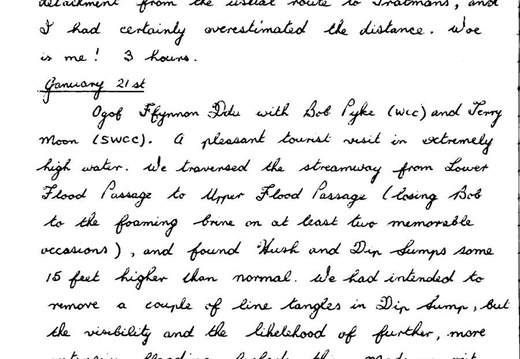 detachment from the usual route to Tratmans, and
I had certainly overestimated the distance. Woe
is me! 3 hours.
January 21st
Ogof Ffynnon Ddu with Bob Pyke (WCC) and Terry
Moon (SWCC). A pleasant tourist visit in extremely
high water. We traversed the streamway from Lower
Flood Passage to Upper Flood Passage (losing Bob
to the foaming brine on at least two memorable
occasions), and found Hush and Dip Sumps some
15 feet higher than normal. We had intended to
remove a couple of line tangles in Dip Sump, but
the visibility and the likelehood of further, more